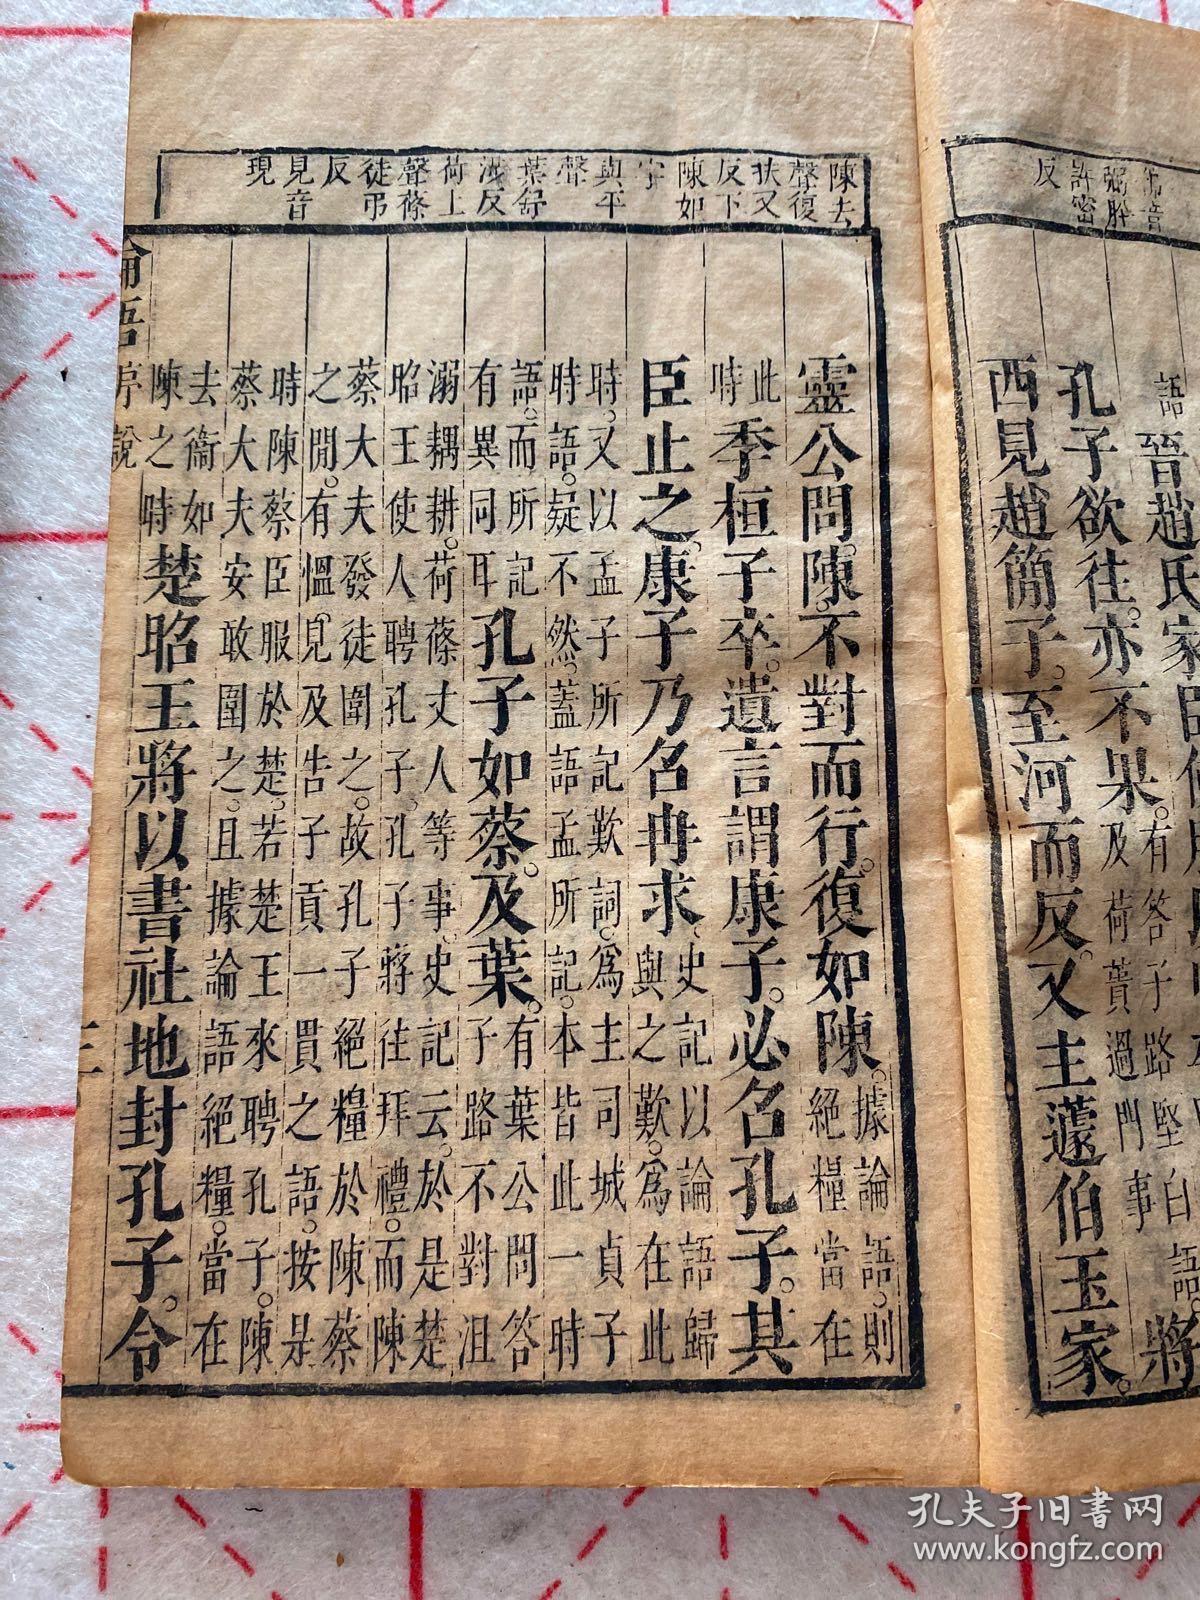 佛音
弼肸
許密
反
語
晉趙氏家
孔子欲往。亦不果。有答子路堅白語。
及荷蕢過門事
將
西見趙簡子。至河而反。又主蘧伯玉家。
陳去
聲復
扶又
反下
陳如
字
與平
聲
葉舒
涉反
荷上
聲蓧
徒弔
反
見音
現
靈公問陳。不對而行。復如陳。據論語。則
絕糧當在
此
時
季桓子卒。遺言謂康子。必召孔子。其
臣止之。康子乃召冉求。史記以論語歸
與之歎。爲在此
時。又以孟子所記歎詞。爲主司城貞子
時語。疑不然。蓋語孟所記。本皆此一時
語。而所記
有異同耳
孔子如蔡。及葉。有葉公問答
子路不對沮
溺耦耕。荷蓧丈人等事。史記云。於是楚
昭王使人聘孔子。孔子將往拜禮。而陳
蔡大夫發徒圍之。故孔子絕糧於陳蔡
之閒。有慍見及告子貢一貫之語。按是
時陳蔡臣服於楚。若楚王來聘孔子。陳
蔡大夫安敢圍之。且據論語絕糧。當在
去衞如
陳之時
楚昭王將以書社地封孔子。令
論語序說
三
孔夫子旧書网
www.kongfz.com